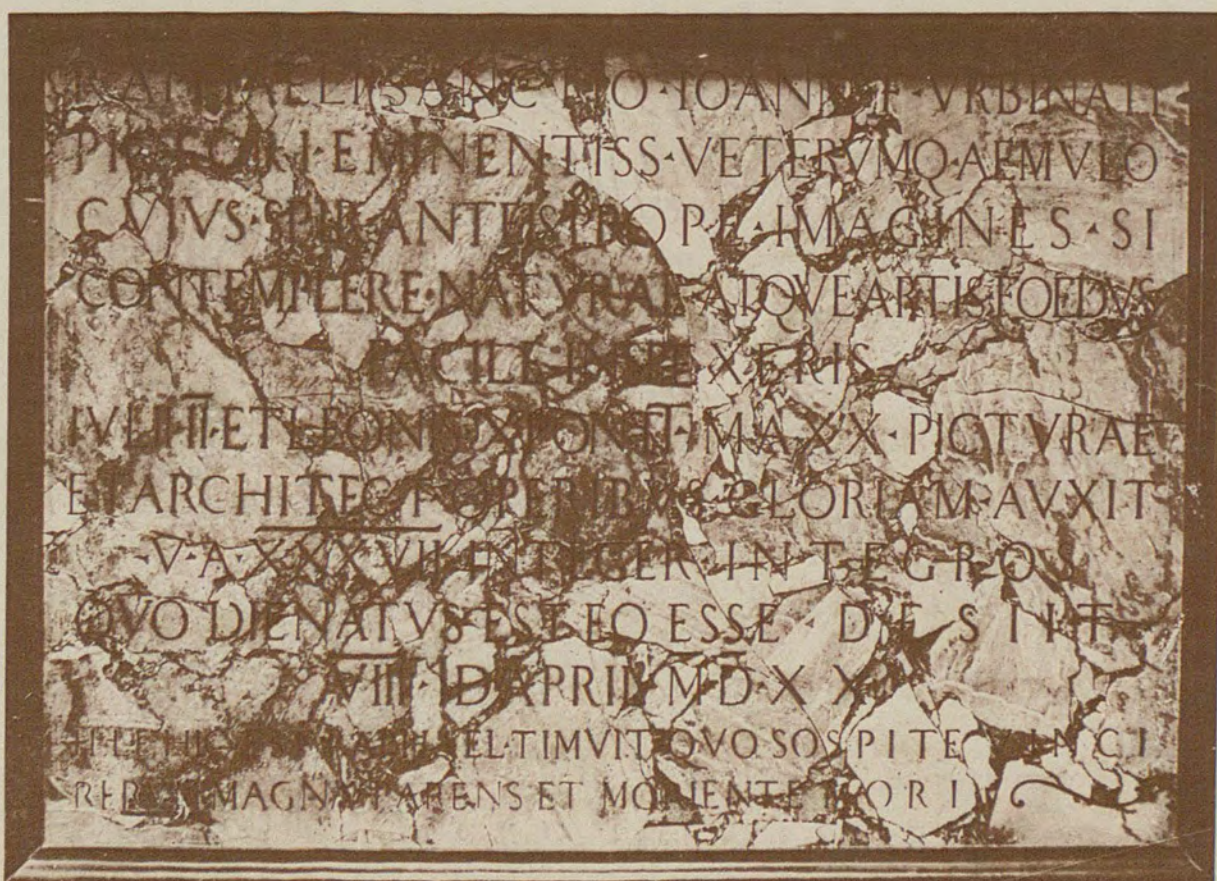 RAPHAELI·SANCTIO·IOANN·F·VRBINATI
PICTORI·EMINENTISS·VETERVMQ·AEMVLO
CVIVS·SPIRANTEIS·PROPE·IMAGINES·SI
CONTEMPLERE·NATVRAE·ATQVE ARTIS FOEDVS
FACILE INSPEXERIS
IVLII·II·ET LEONIS X PONTT·MAXX·PICTVRAE
ET ARCHITECT·OPERIBVS GLORIAM AVXIT
V·A·XXXVII INTEGER INTEGROS
QVO DIE NATVS EST EO ESSE DESIIT
VIII·ID APRIL MDXX
ILLE HIC EST RAPHAEL·TIMVIT QVO SOSPITE VINCI
RERVM MAGNA PARENS ET MORIENTE MORI